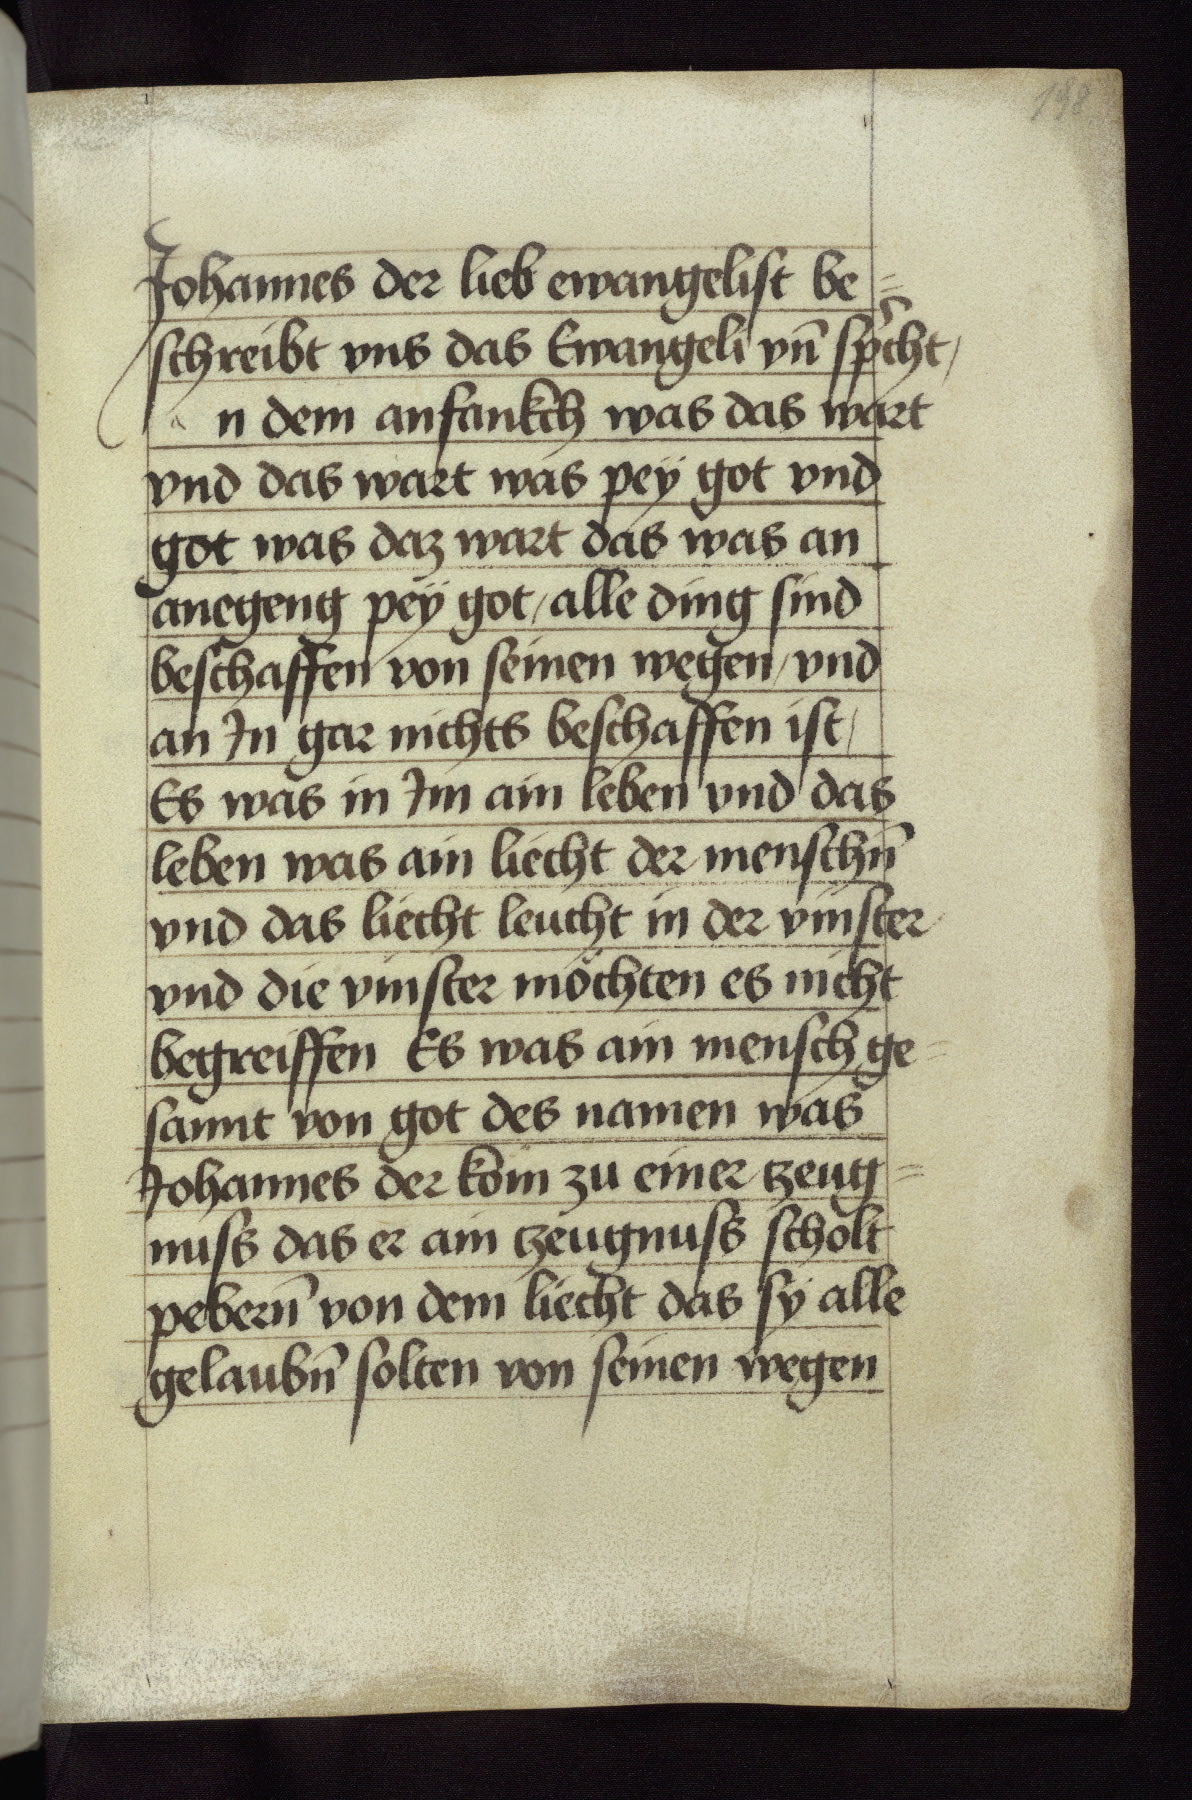 198
Johannes der lieb ewangelist be=
schreibt vns das Ewangeli vn̄ sp̄cht /
n dem anfankch was das wart
vnd das wart was peÿ got vnd
got was daz wart das was an
anegeng peÿ got / alle ding sind
beschaffen von seinen wegen / vnd
an In gar nichts beschaffen ist /
Es was in Im ain leben vnd das
leben was ain liecht der menschn̄
vnd das liecht leucht in der vinster
vnd die vinster möchten es nicht
begreiffen Es was ain mensch ge=
sannt von got des namen was
Johannes der köm zu einer tzeug=
nuss das er ain tzeugnuss scholt
pebern̄ von dem liecht das sÿ alle
gelaubn̄ solten von seinen wegen